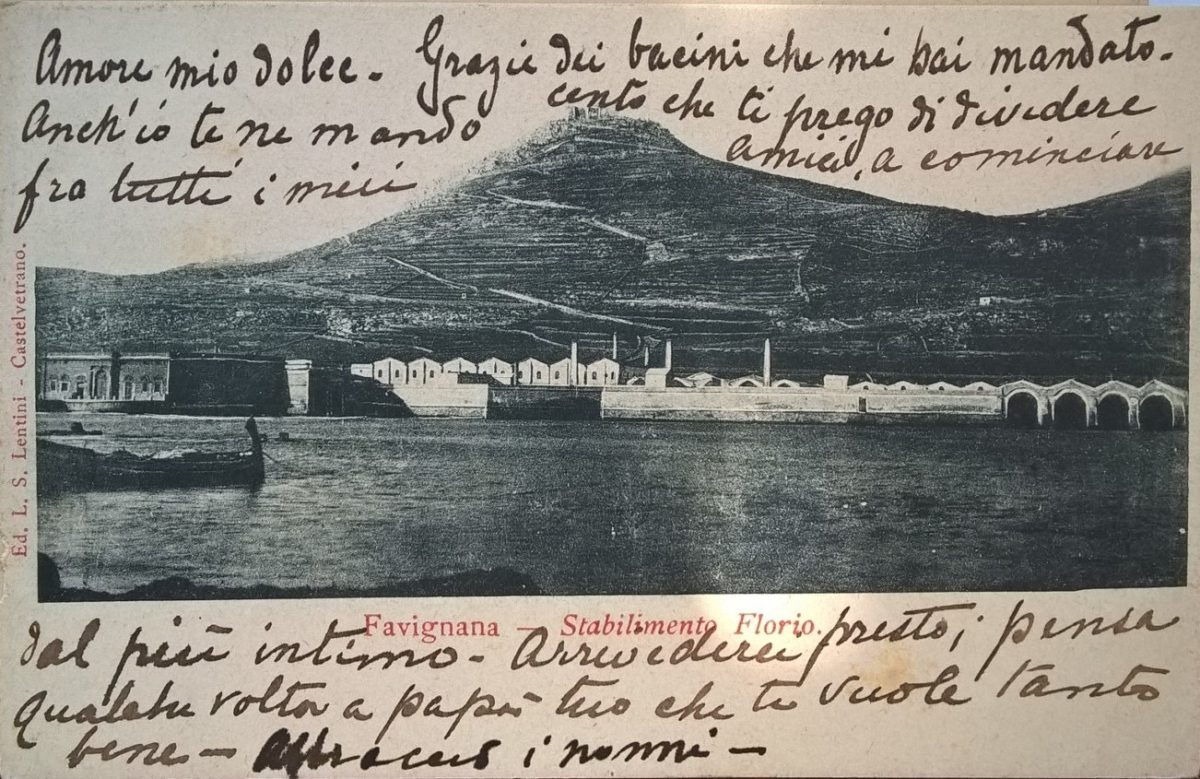 Amore mio dolce - Grazie dei bacini che mi hai mandato.
Anch'io te ne mando cento che ti prego di dividere
fra tutti i miei amici, a cominciare
Ed. L. S. Lentini - Castelvetrano.
Favignana — Stabilimento Florio.
dal più intimo - Arrivederci presto; pensa
qualche volta a papà tuo che ti vuole tanto
bene - Abbracci i nonni -